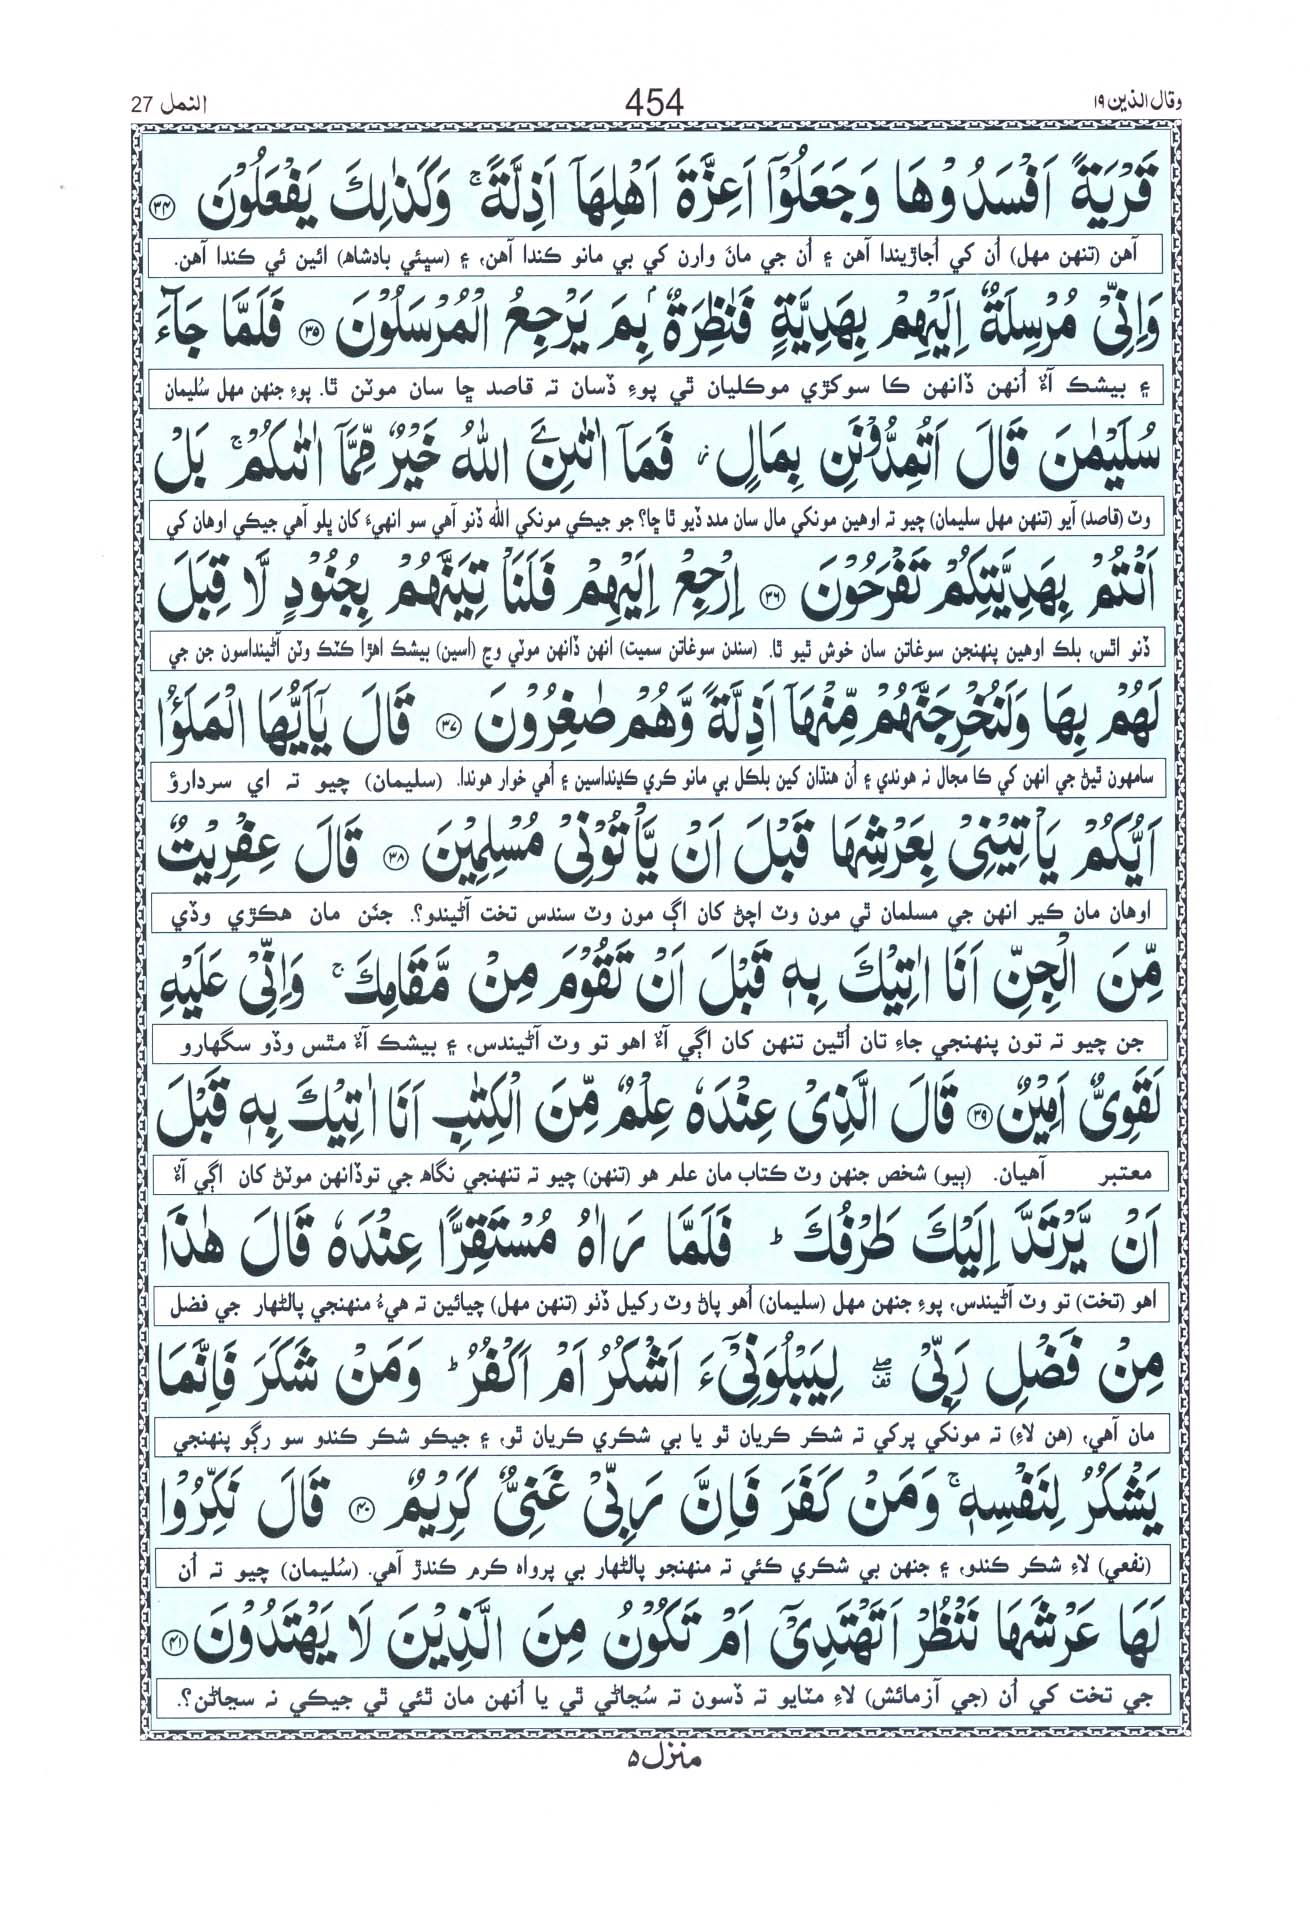 وقال الذين ۱۹
454
النمل 27
قَرْيَةً اَفْسَدُوْهَا وَجَعَلُوْۤا اَعِزَّةَ اَهْلِهَاۤ اَذِلَّةً ۚ وَكَذٰلِكَ يَفْعَلُوْنَ ۝۳۴
آهن (تنهن مهل) اُن کي اُجاڙيندا آهن ۽ اُن جي مان وارن کي بي مانو ڪندا آهن، ۽ (سڀئي بادشاھ) ائين ئي ڪندا آهن.
وَاِنِّىْ مُرْسِلَةٌ اِلَيْهِمْ بِهَدِيَّةٍ فَنٰظِرَةٌۢ بِمَ يَرْجِعُ الْمُرْسَلُوْنَ ۝۳۵ فَلَمَّا جَآءَ
۽ بيشڪ آءٌ اُنهن ڏانهن ڪا سوکڙي موڪليان ٿي پوءِ ڏسان تہ قاصد ڇا سان موٽن ٿا. پوءِ جنهن مهل سُليمان
سُلَيْمٰنَ قَالَ اَتُمِدُّوْنَنِ بِمَالٍ ۫ فَمَاۤ اٰتٰىنِۦَ اللّٰهُ خَيْرٌ مِّمَّاۤ اٰتٰىكُمْ ۚ بَلْ
وٽ (قاصد) آيو (تنهن مهل سليمان) چيو تہ اوهين مونکي مال سان مدد ڏيو ٿا ڇا؟ جو جيڪي مونکي الله ڏنو آهي سو انهيءَ کان ڀلو آهي جيڪي اوهان کي
اَنْتُمْ بِهَدِيَّتِكُمْ تَفْرَحُوْنَ ۝۳۶ اِرْجِعْ اِلَيْهِمْ فَلَنَاْتِيَنَّهُمْ بِجُنُوْدٍ لَّا قِبَلَ
ڏنو اٿس، بلڪ اوهين پنهنجن سوغاتن سان خوش ٿيو ٿا. (سندن سوغاتن سميت) انهن ڏانهن موٽي وڃ (اسين) بيشڪ اهڙا ڪٽڪ وٽن آڻينداسون جن جي
لَهُمْ بِهَا وَلَنُخْرِجَنَّهُمْ مِّنْهَاۤ اَذِلَّةً وَّهُمْ صٰغِرُوْنَ ۝۳۷ قَالَ يٰۤاَيُّهَا الْمَلَؤُا
سامهون ٿيڻ جي انهن کي ڪا مجال نہ هوندي ۽ اُن هنڌان کين بلڪل بي مانو ڪري ڪڍنداسين ۽ اُهي خوار هوندا. (سليمان) چيو تہ اي سردارؤ
اَيُّكُمْ يَاْتِيْنِىْ بِعَرْشِهَا قَبْلَ اَنْ يَّاْتُوْنِىْ مُسْلِمِيْنَ ۝۳۸ قَالَ عِفْرِيْتٌ
اوهان مان ڪير انهن جي مسلمان ٿي مون وٽ اچڻ کان اڳ مون وٽ سندس تخت آڻيندو؟. جنَن مان هڪڙي وڏي
مِّنَ الْجِنِّ اَنَا اٰتِيْكَ بِهٖ قَبْلَ اَنْ تَقُوْمَ مِنْ مَّقَامِكَ ۚ وَاِنِّىْ عَلَيْهِ
جن چيو تہ تون پنهنجي جاءِ تان اُٿين تنهن کان اڳي آءٌ اهو تو وٽ آڻيندس، ۽ بيشڪ آءٌ مٿس وڏو سگهارو
لَقَوِىٌّ اَمِيْنٌ ۝۳۹ قَالَ الَّذِىْ عِنْدَهٗ عِلْمٌ مِّنَ الْكِتٰبِ اَنَا اٰتِيْكَ بِهٖ قَبْلَ
معتبر آهيان. (ٻيو) شخص جنهن وٽ ڪتاب مان علم هو (تنهن) چيو تہ تنهنجي نگاھ جي توڏانهن موٽڻ کان اڳي آءٌ
اَنْ يَّرْتَدَّ اِلَيْكَ طَرْفُكَ ؕ فَلَمَّا رَاٰهُ مُسْتَقِرًّا عِنْدَهٗ قَالَ هٰذَا
اهو (تخت) تو وٽ آڻيندس، پوءِ جنهن مهل (سليمان) اُهو پاڻ وٽ رکيل ڏٺو (تنهن مهل) چيائين تہ هيءُ منهنجي پالڻهار جي فضل
مِنْ فَضْلِ رَبِّىْ ۖ لِيَبْلُوَنِىْۤ ءَاَشْكُرُ اَمْ اَكْفُرُ ؕ وَمَنْ شَكَرَ فَاِنَّمَا
مان آهي، (هن لاءِ) تہ مونکي پرکي تہ شڪر ڪريان ٿو يا بي شڪري ڪريان ٿو، ۽ جيڪو شڪر ڪندو سو رڳو پنهنجي
يَشْكُرُ لِنَفْسِهٖ ۚ وَمَنْ كَفَرَ فَاِنَّ رَبِّىْ غَنِىٌّ كَرِيْمٌ ۝۴۰ قَالَ نَكِّرُوْا
(نفعي) لاءِ شڪر ڪندو، ۽ جنهن بي شڪري ڪئي تہ منهنجو پالڻهار بي پرواھ ڪرم ڪندڙ آهي. (سُليمان) چيو تہ اُن
لَهَا عَرْشَهَا نَنْظُرْ اَتَهْتَدِىْۤ اَمْ تَكُوْنُ مِنَ الَّذِيْنَ لَا يَهْتَدُوْنَ ۝۴۱
جي تخت کي اُن (جي آزمائش) لاءِ مٽايو تہ ڏسون تہ سُڃاڻي ٿي يا اُنهن مان ٿئي ٿي جيڪي نہ سڃاڻن؟.
منزل ۵